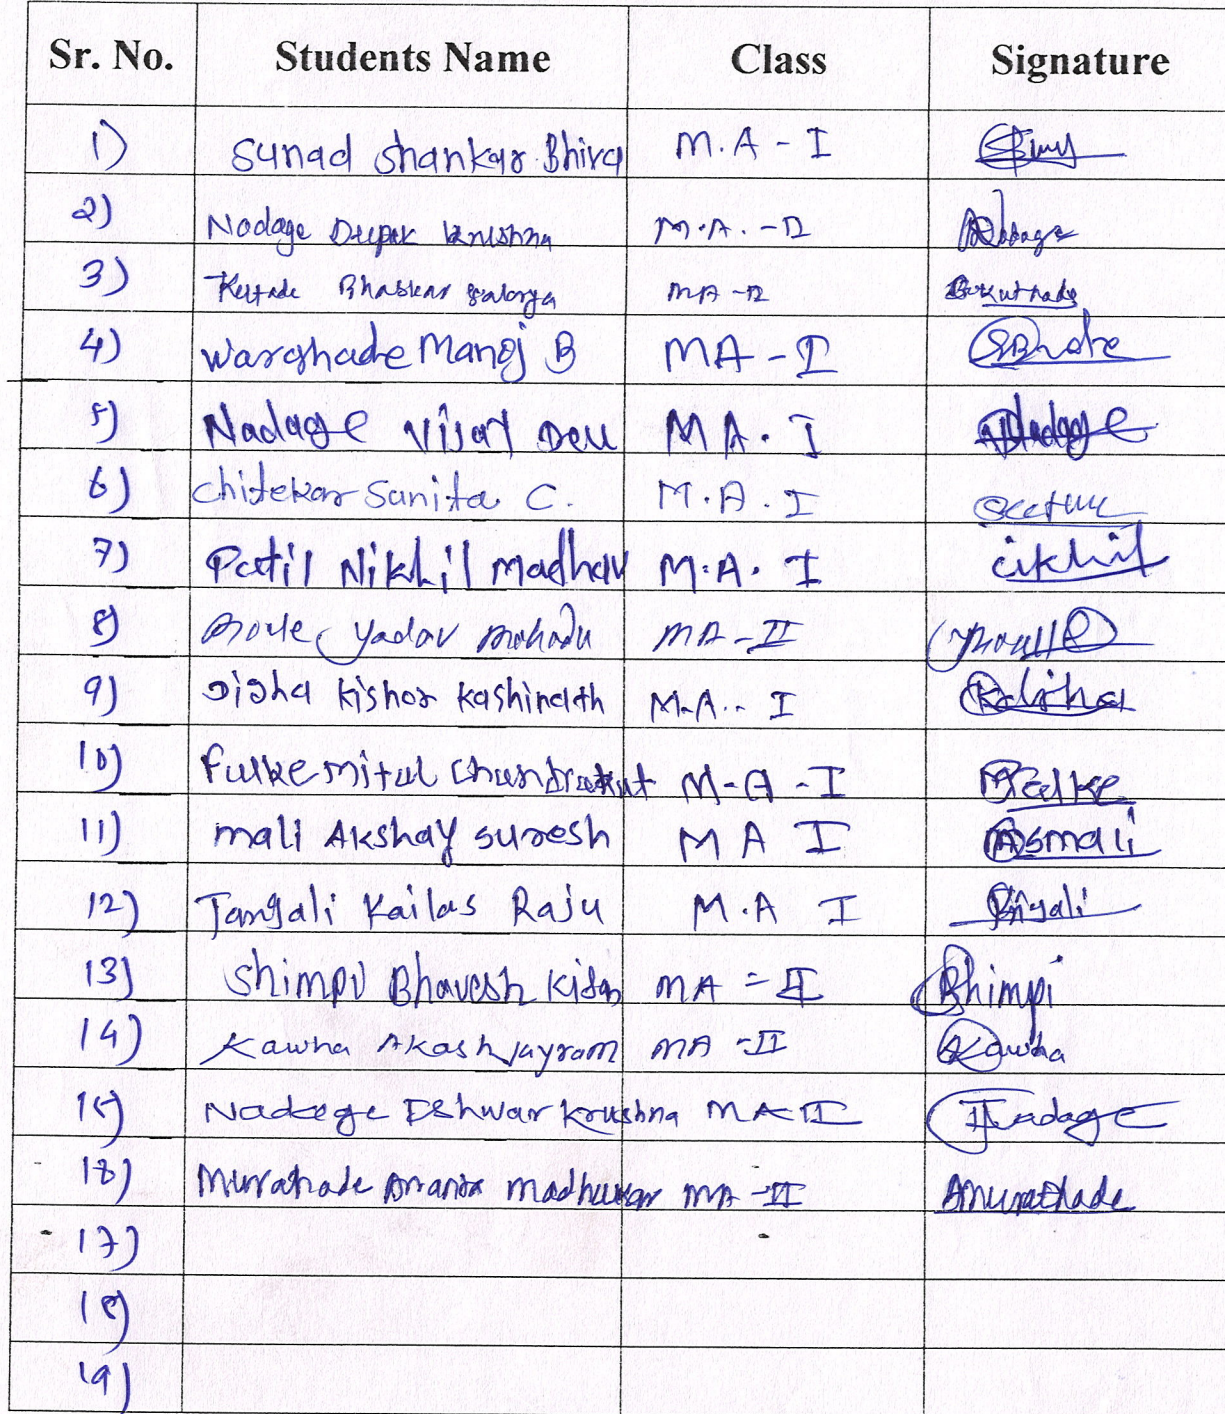 Sr. No. Students Name Class Signature
1) Sunad Shankar Bhiva M.A - I
2) Nadage Deepak Krushna M.A. - II Nadage
3) Bhaskar MA - II
4) Warghade Manoj B MA - I
5) Nadage Vijay Deu MA. I Nadage
6) Chitekar Sunita C. M.A. I
7) Patil Nikhil Madhav M.A. I
8) Yadav Mahadu MA - II
9) Disha Kishor Kashinath M.A. - I
10) Fulke Mitul Chandrakant M-A - I
11) mali Akshay suresh M A I Asmali
12) Jangali Kailas Raju M.A I
13) Shimpi Bhavesh MA - II Bhimpi
14) Kawha Akash Jayram MA - II Kawha
15) Nadage Eshwar Krushna MA II
16) Murathade Ananta Madhukar MA - II Amurathade
17)
18)
19)